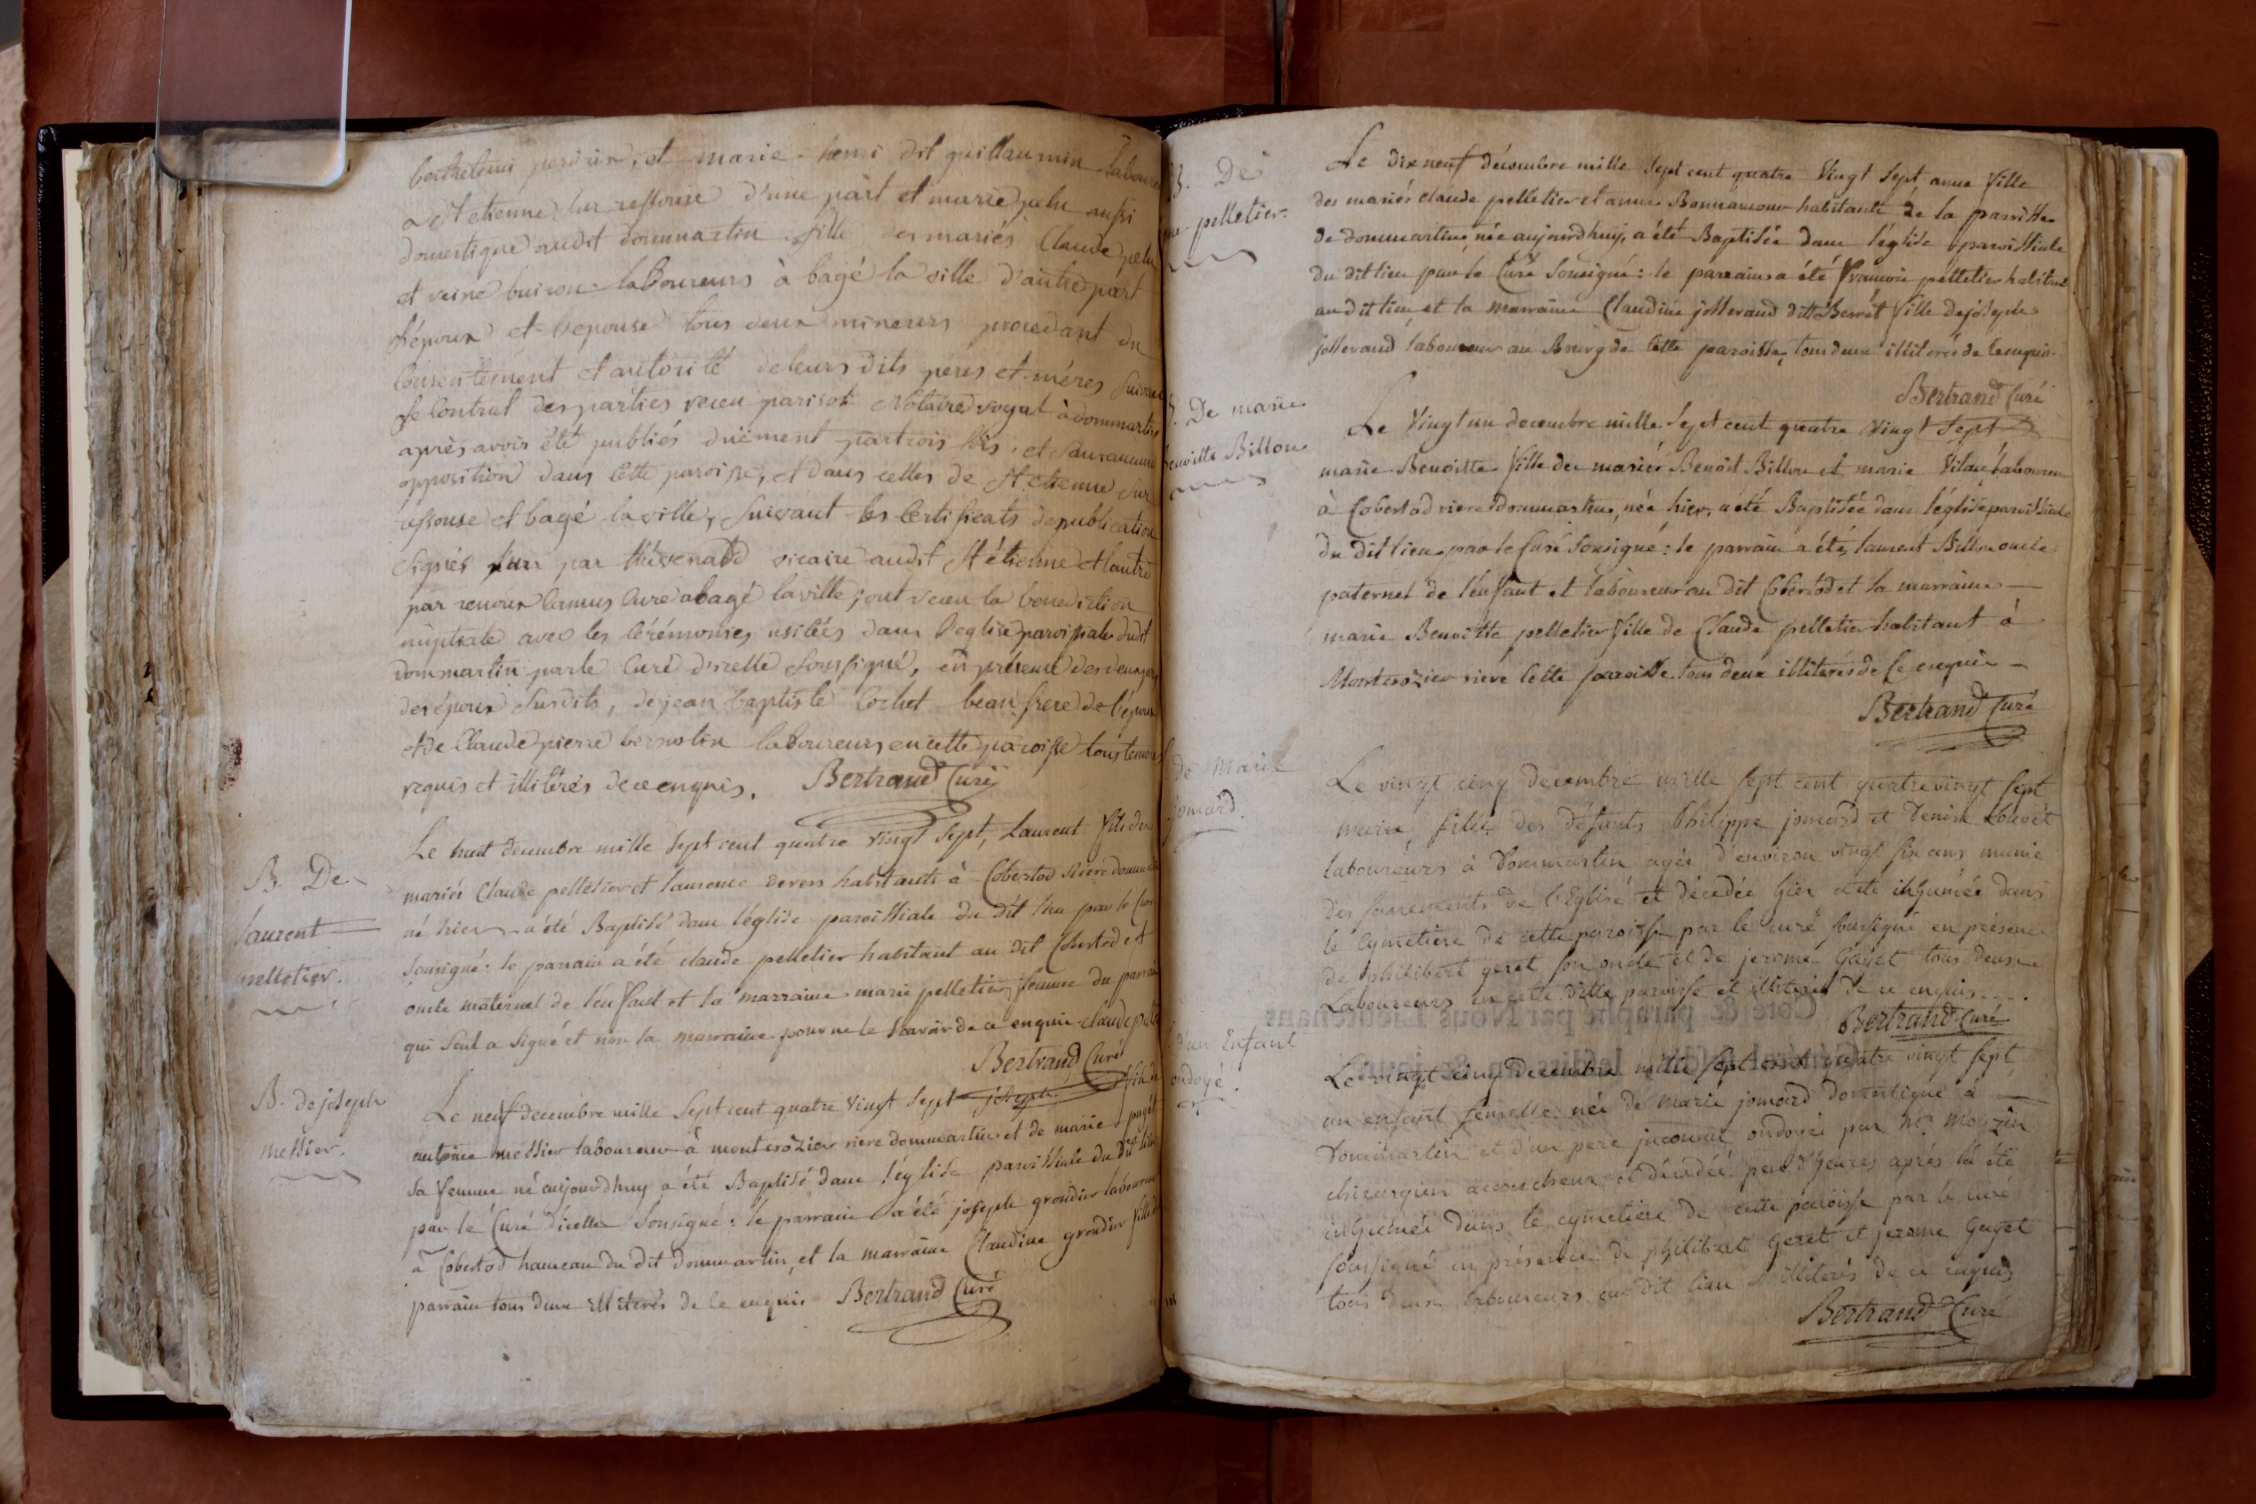 berthelemi perrin, et marie henri dit guillaumin laboureurs
à St etienne sur ressouse d'une part et marie pelu aussi
domestique audit dommartin fille des mariés Claude pelu
et reine buiron laboureurs à bagé la ville d'autre part
l'époux et l'epouse tous deux mineurs procedant du
consentement et autorité de leurs dits peres et méres suivant
le contrat des parties receu parisot Notaire royal à dommartin
après avoir été publiés duëment par trois fois, et sans aucune
opposition dans cette paroisse, et dans celles de St etienne sur
ressouse et bagé la ville, suivant les certificats de publication
signés l'un par thévenard vicaire audit St étienne et l'autre
par curé a bagé la ville; ont receu la benediction
nuptiale avec les cérémonies usitées dans l'eglise paroissiale dudit
dommartin par le curé d'icelle soussigné, en présence des
des époux susdits, de jean baptiste Cochet beau frere de l'époux
et de Claude pierre laboureurs en cette paroisse tous temoins
requis et illitérés de ce enquis. Bertrand Curé
B. De
laurent
pelletier.
Le huit decembre mille sept cent quatre vingt sept, laurent fils des
mariés Claude pelletier et laurence habitants à Cobertod riere dommartin
né hier a été Baptisé dans l'église paroissiale du dit lieu par le Curé
sousigné: le parrain a été claude pelletier habitant au dit Cobertod et
oncle maternel de l'enfant et la marraine marie pelletier femme du parrain
qui seul a signé et non la marraine pour ne le savoir de ce enquis claude
Bertrand Curé
B. de joseph
messier.
Le neuf decembre mille sept cent quatre vingt sept joseph fils de
antoine messier laboureur à montcrozier riere dommartin et de marie
sa femme né aujourdhuy a été Baptisé dans l'église paroissiale du dit lieu
par le Curé d'icelle sousigné: le parrain a été joseph grondier laboureur
à Cobertod hameau du dit dommartin, et la marraine Claudine grondier fille du
parrain tous deux illiterés de ce enquis Bertrand Curé
B. De
pelletier.
Le dix neuf décembre mille sept cent quatre vingt sept anne fille
des mariés claude pelletier et anne Bonnamour habitants de la paroisse
de dommartin, née aujourdhuy, a été Baptisée dans l'église paroissiale
du dit lieu par le Curé sousigné: le parrain a été françois pelletier habitant
au dit lieu et la marraine Claudine josserand ditte Berret fille de joseph
josserand laboureur au Bourg de cette paroisse, tous deux illiterés de ce enquis.
Bertrand Curé
B. De marie
benoitte Billon
Le vingt un decembre mille sept cent quatre vingt sept
marie Benoitte fille des mariés Benoit Billon et marie laboureurs
à Cobertod riere dommartin, née hier, a été Baptisée dans l'église paroissiale
du dit lieu par le Curé sousigné: le parrain a été laurent Billon oncle
paternel de l'enfant et laboureur au dit Cobertod et la marraine
marie Benoitte pelletier fille de Claude pelletier habitant à
Montcrozier riere cette paroisse tous deux illiterés de ce enquis
Bertrand Curé
de Marie
Jomard.
Le vingt cinq decembre mille sept cent quatre vingt sept
marie, fille des défunts Philippe jomard et Denise
laboureurs à Dommartin agée d'environ vingt six ans munie
des sacrements de l'Eglise et décedée hier a été inhumée dans
le cymetiere de cette paroisse par le curé soussigné en présence
de philibert geret son oncle et de jerome Gayet tous deux
Laboureurs en cette ditte paroisse et illiterés de ce enquis.
Bertrand Curé
Coté & paraphé par Nous Lieutenant
d'un Enfant
ondoyé.
Le vingt cinq decembre mille sept cent quatre vingt sept,
un enfant femelle née de marie jomard domestique à
Dommartin et d'un pere inconnu, ondoyé par Mr
chirurgien accoucheur et décedée peu d'heures après la été
inhumée dans le cymetiere de cette paroisse par le curé
soussigné en présence de philibert geret et jerome Gayet
tous deux laboureurs au dit lieu illiterés de ce enquis
Bertrand Curé